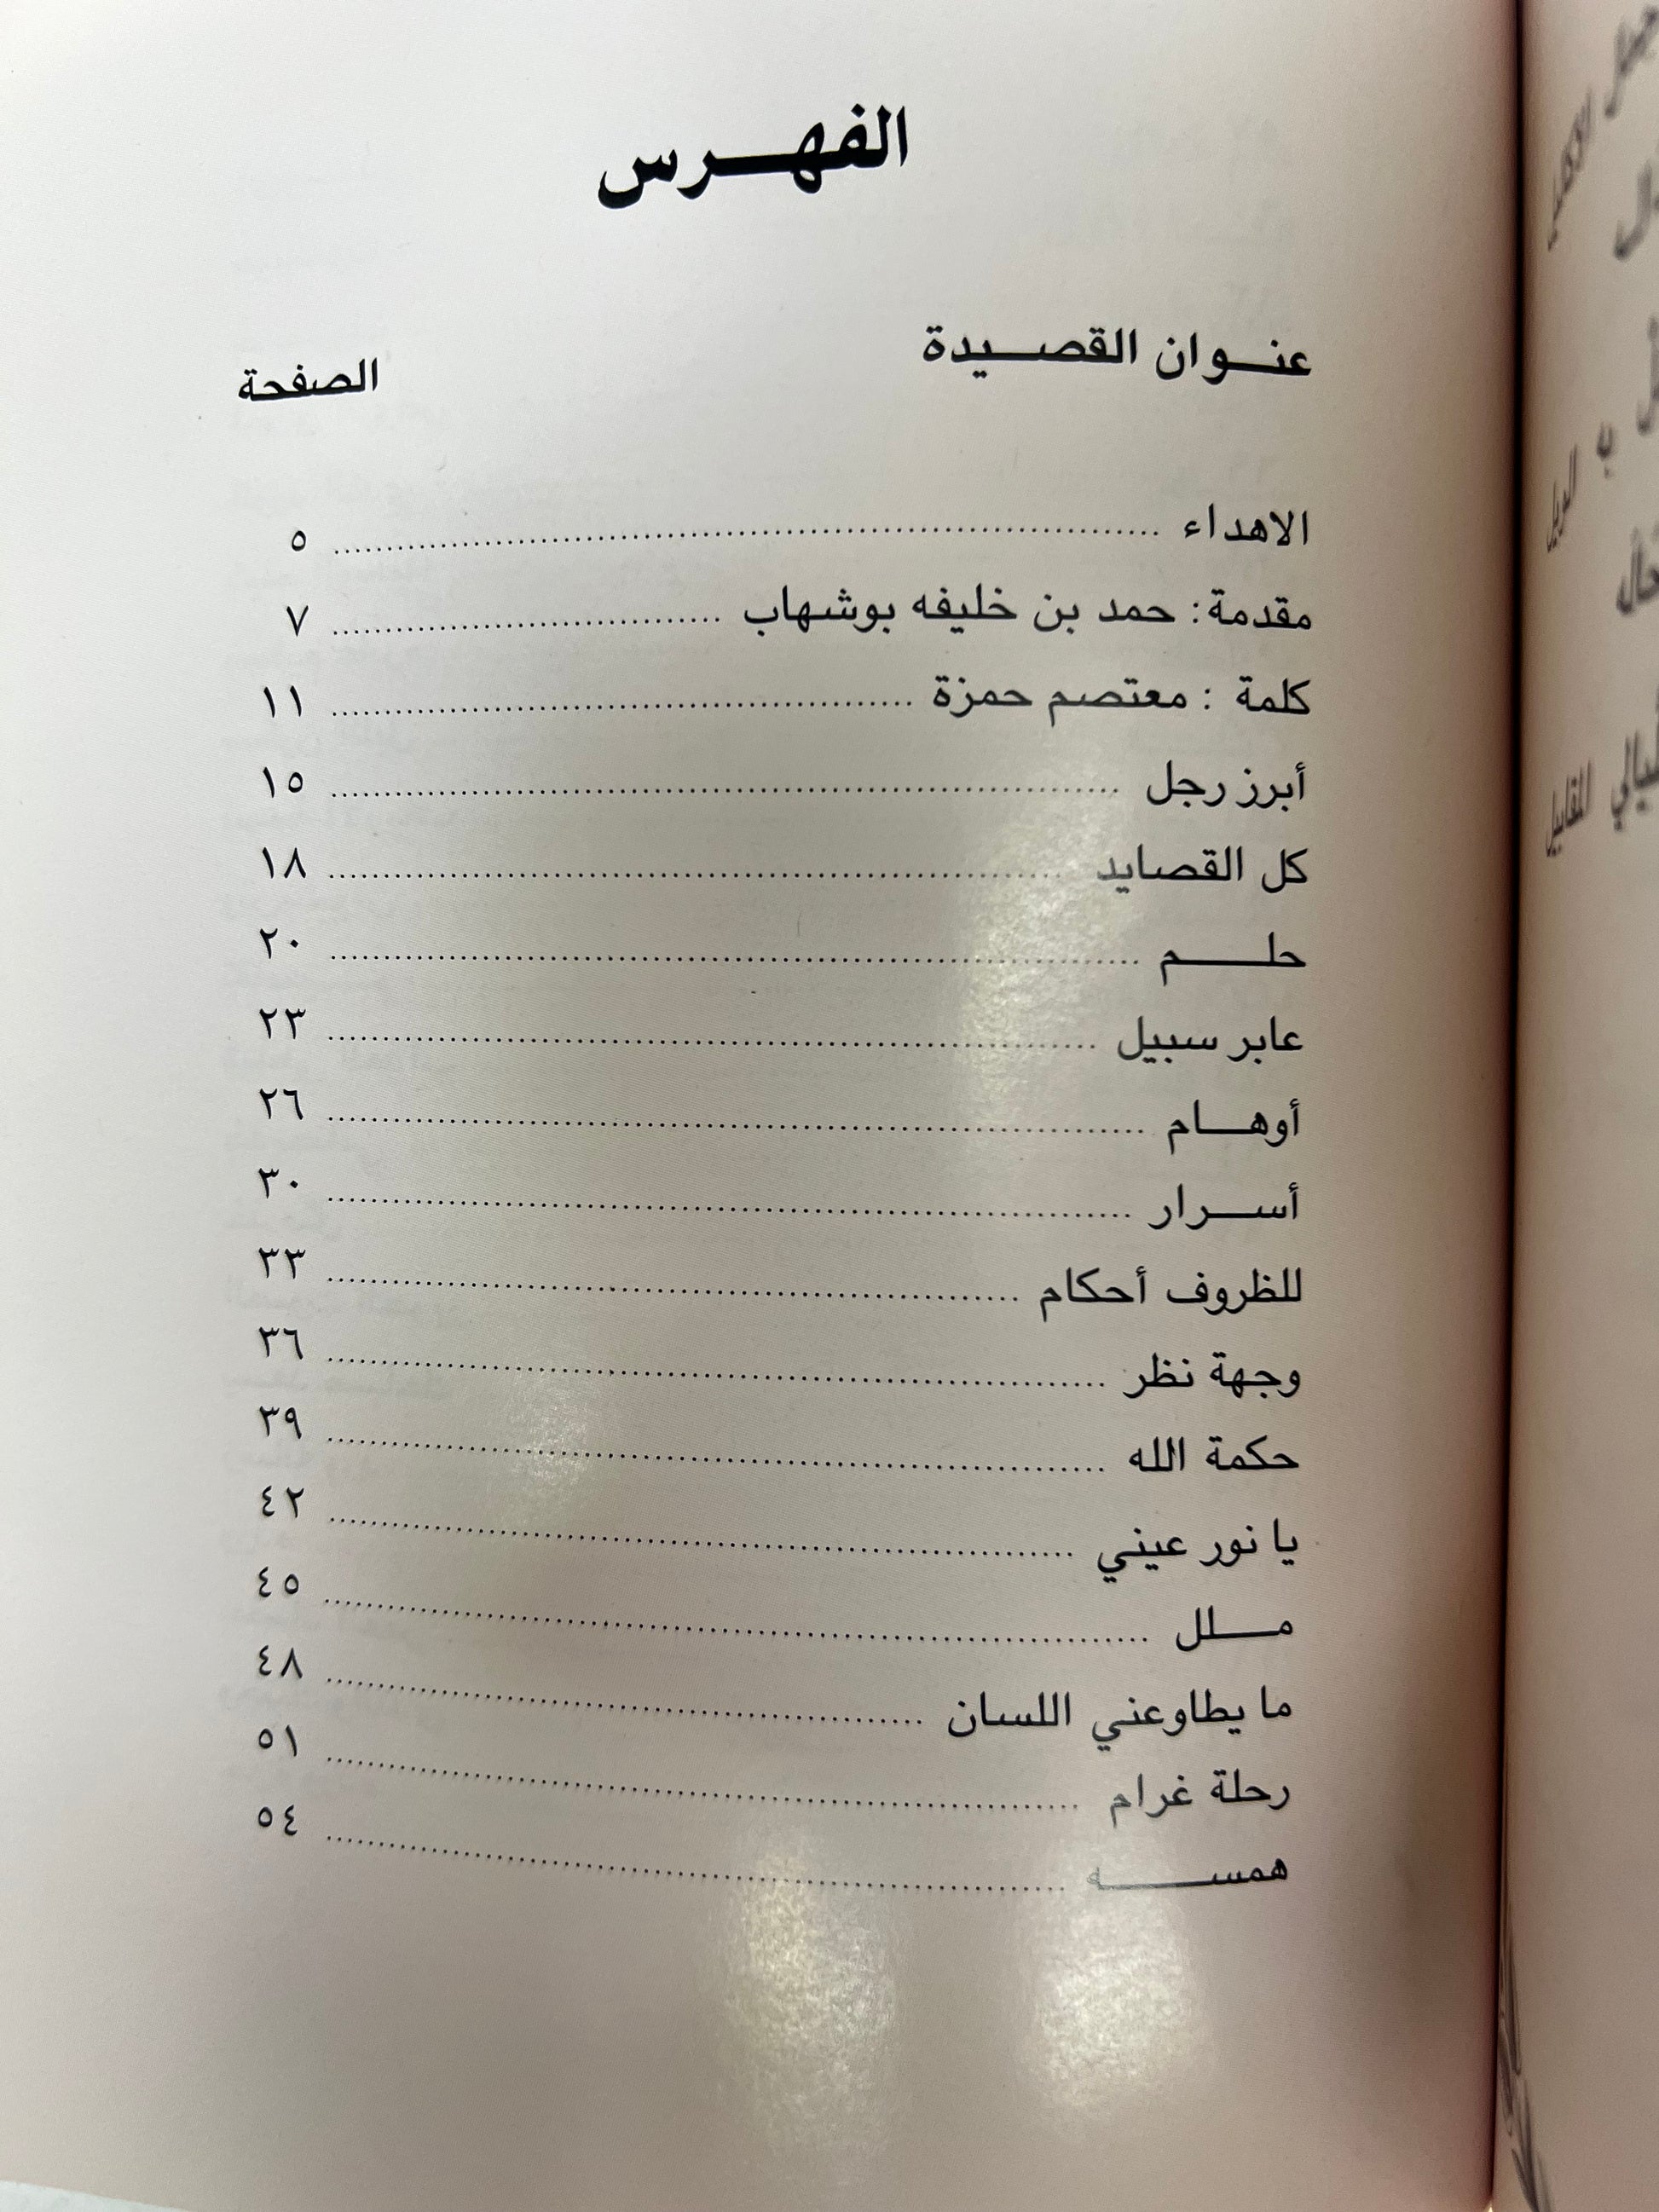 الفهرس
عنوان القصيدة الصفحة
الاهداء ........ ٥
مقدمة: حمد بن خليفه بوشهاب ........ ٧
كلمة : معتصم حمزة ........ ١١
أبرز رجل ........ ١٥
كل القصايد ........ ١٨
حلم ........ ٢٠
عابر سبيل ........ ٢٣
أوهام ........ ٢٦
أسرار ........ ٣٠
للظروف أحكام ........ ٣٣
وجهة نظر ........ ٣٦
حكمة الله ........ ٣٩
يا نور عيني ........ ٤٢
ملل ........ ٤٥
ما يطاوعني اللسان ........ ٤٨
رحلة غرام ........ ٥١
همسه ........ ٥٤